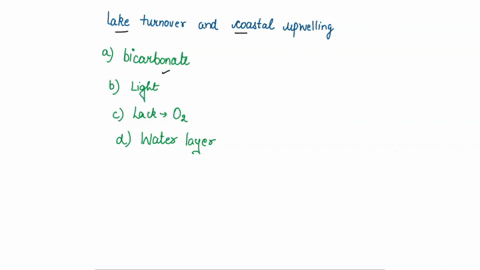 lake turnover and coastal upwelling
a) bicarbonate
b) Light
c) Lack → O₂
d) Water layer